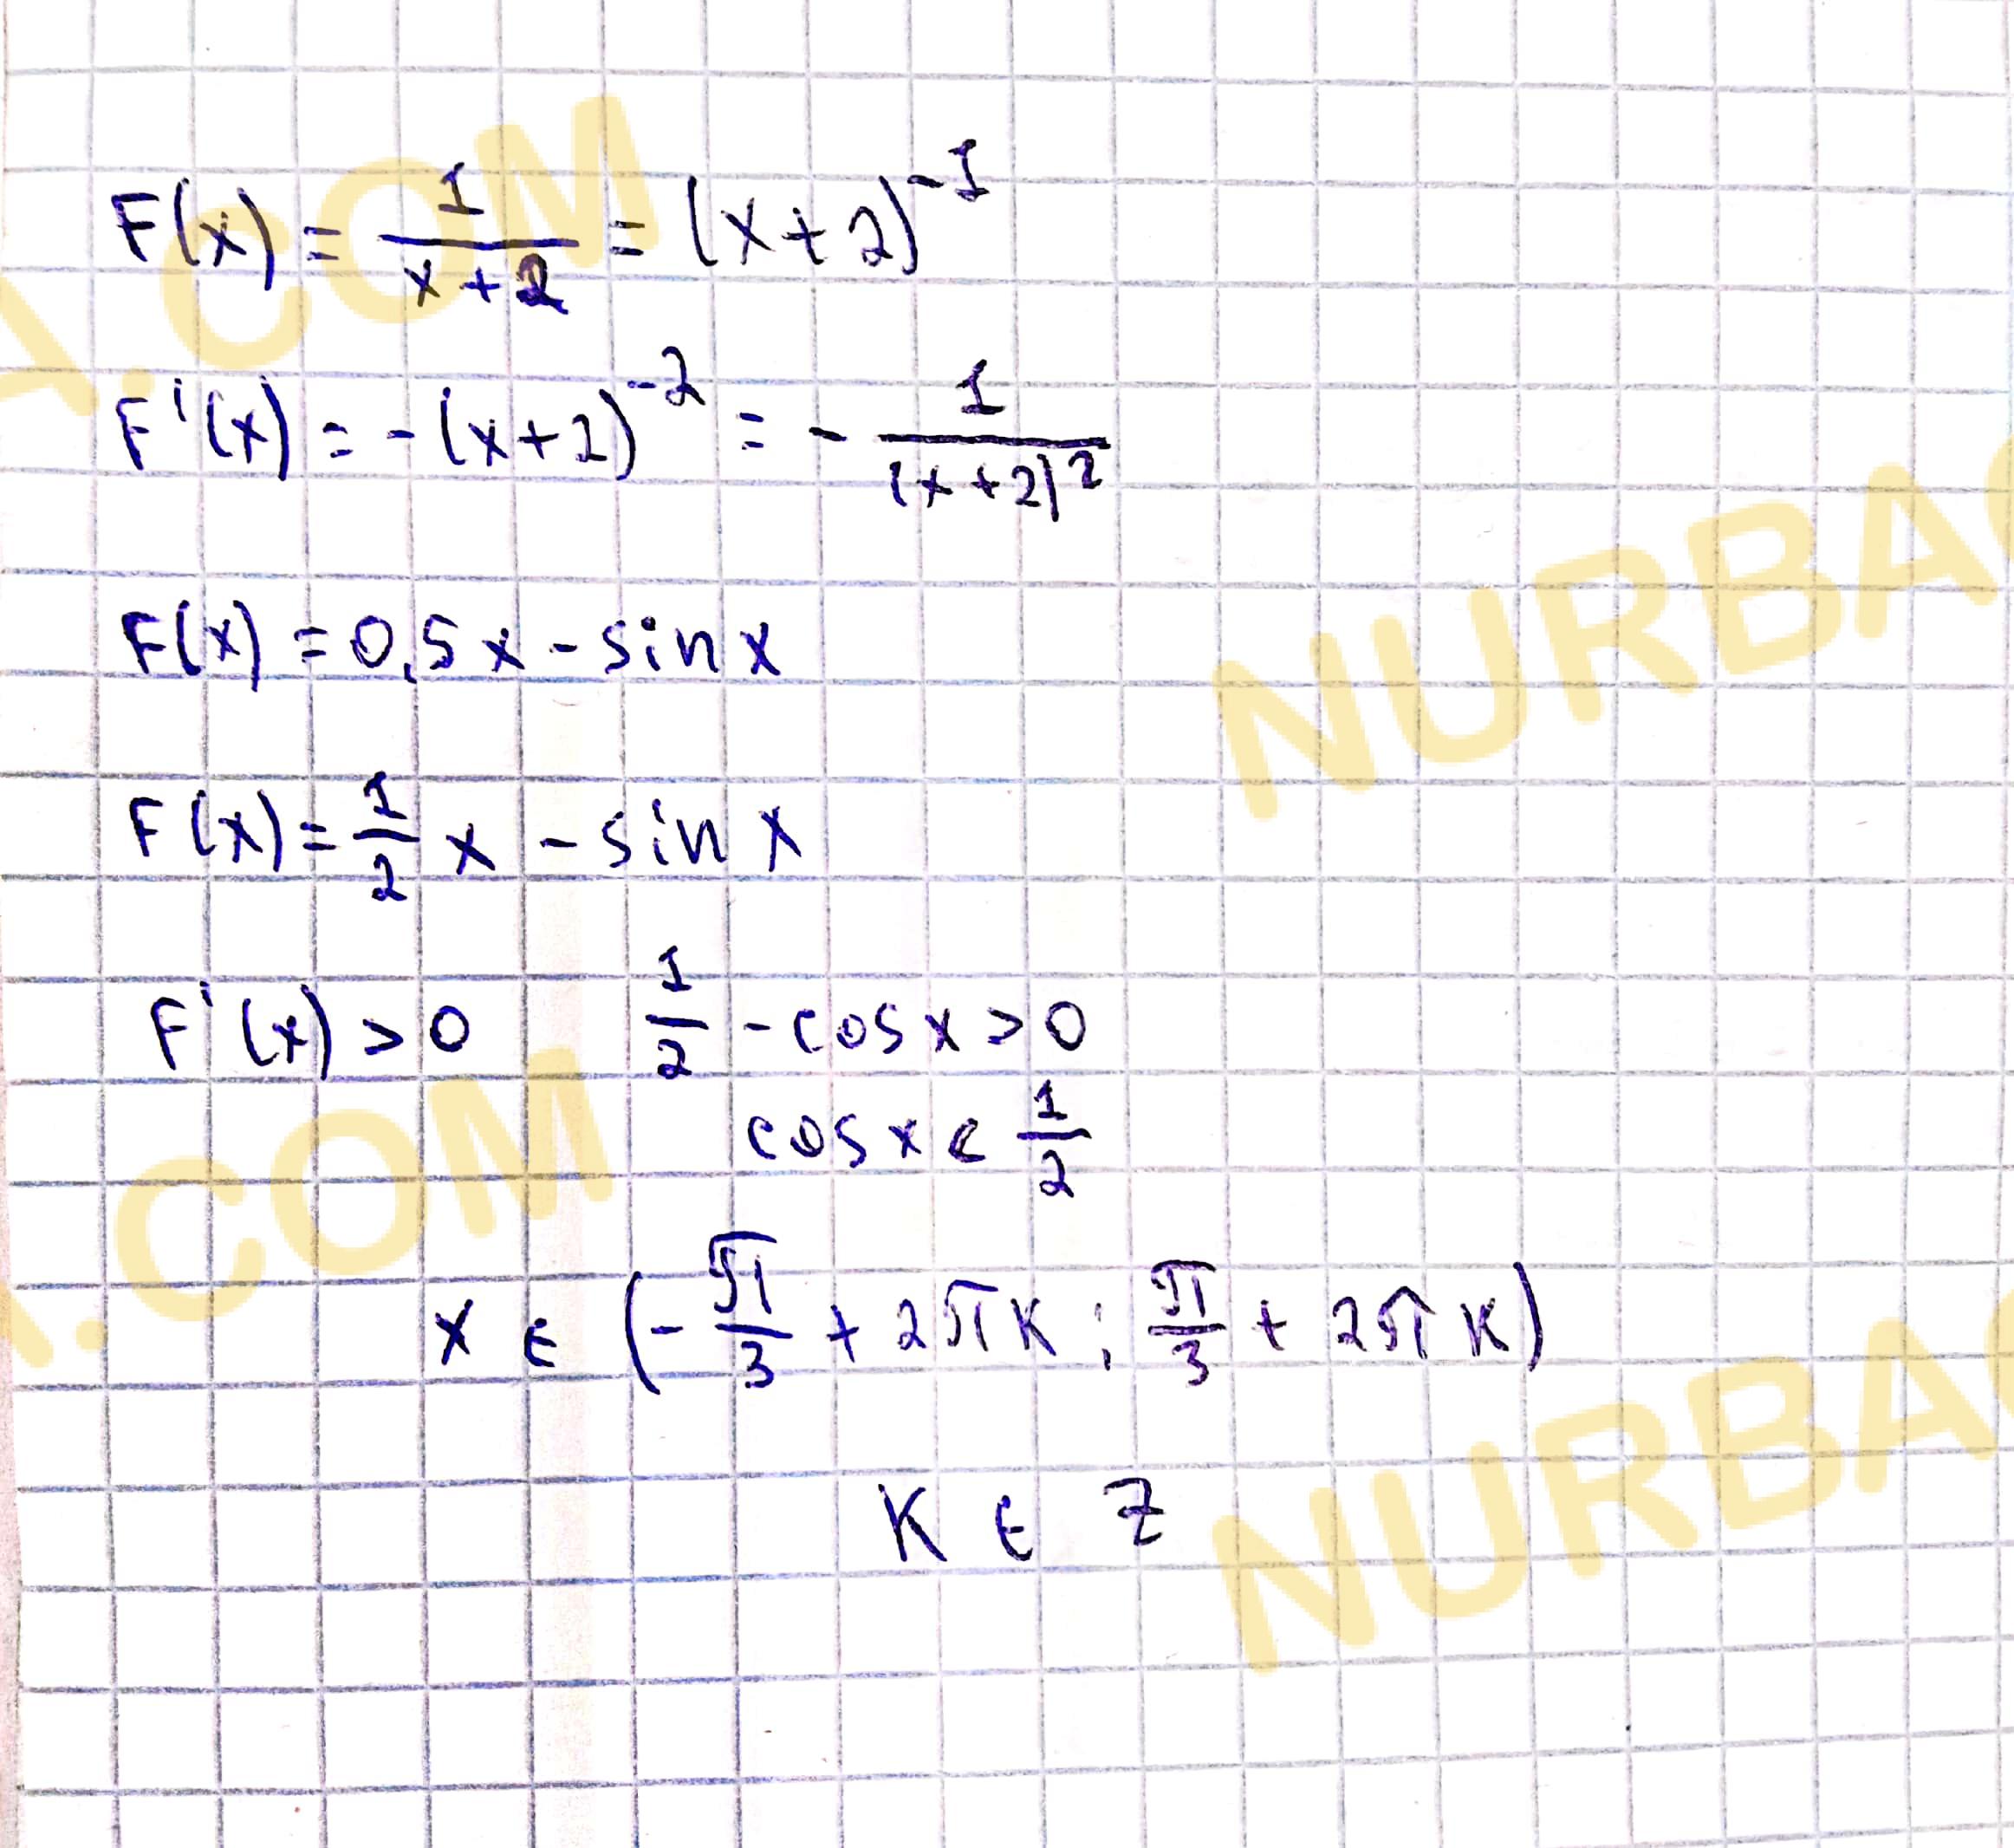 F(x) = 1/(x+2) = (x+2)^-1
F'(x) = -(x+2)^-2 = - 1/(x+2)^2
F(x) = 0,5x - sin x
F(x) = 1/2 x - sin x
F'(x) > 0    1/2 - cos x > 0
cos x < 1/2
x ∈ (-π/3 + 2πK ; π/3 + 2πK)
K ∈ Z
A.COM
NURBA
A.COM
NURBA